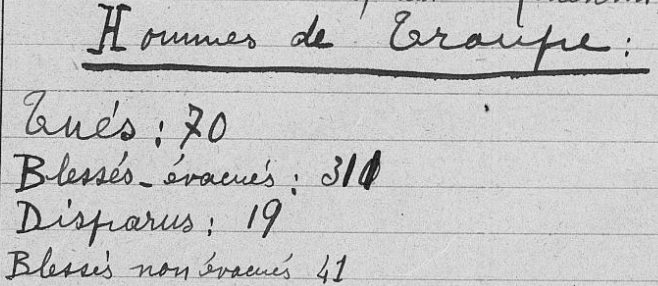 Hommes de Troupe :
Tués : 70
Blessés - évacués : 311
Disparus : 19
Blessés non évacués 41